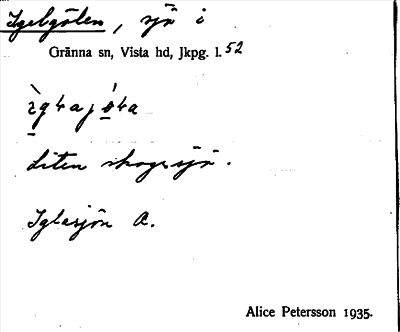 Igelgölen, sjö i
Gränna sn, Vista hd, Jkpg. l. 52
Liten skogssjö.
Iglasjön A.
Alice Petersson 1935.